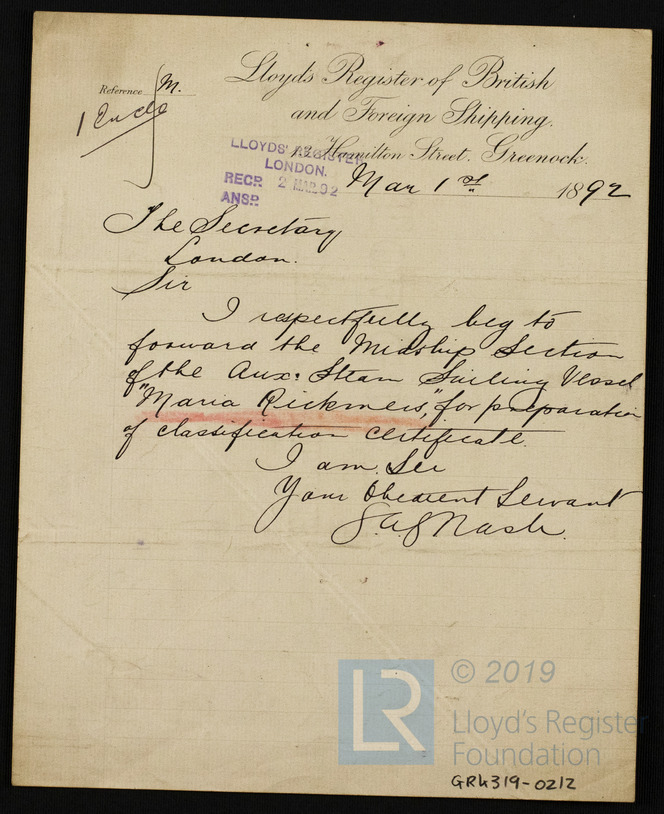 Lloyds Register of British
and Foreign Shipping.
Reference M.
1 Enclo
Hamilton Street. Greenock.
LLOYDS' REGISTER
LONDON.
RECD 2 MAR 92
ANSD
Mar 1st 1892
The Secretary
London.
Sir
I respectfully beg to
forward the Midship Section
of the Aux: Steam Sailing Vessel
"Maria Rickmers," for preparation
of classification certificate.
I am Sir
Your Obedient Servant
Nash.
LR
© 2019
Lloyd's Register
Foundation
GRK319-0212